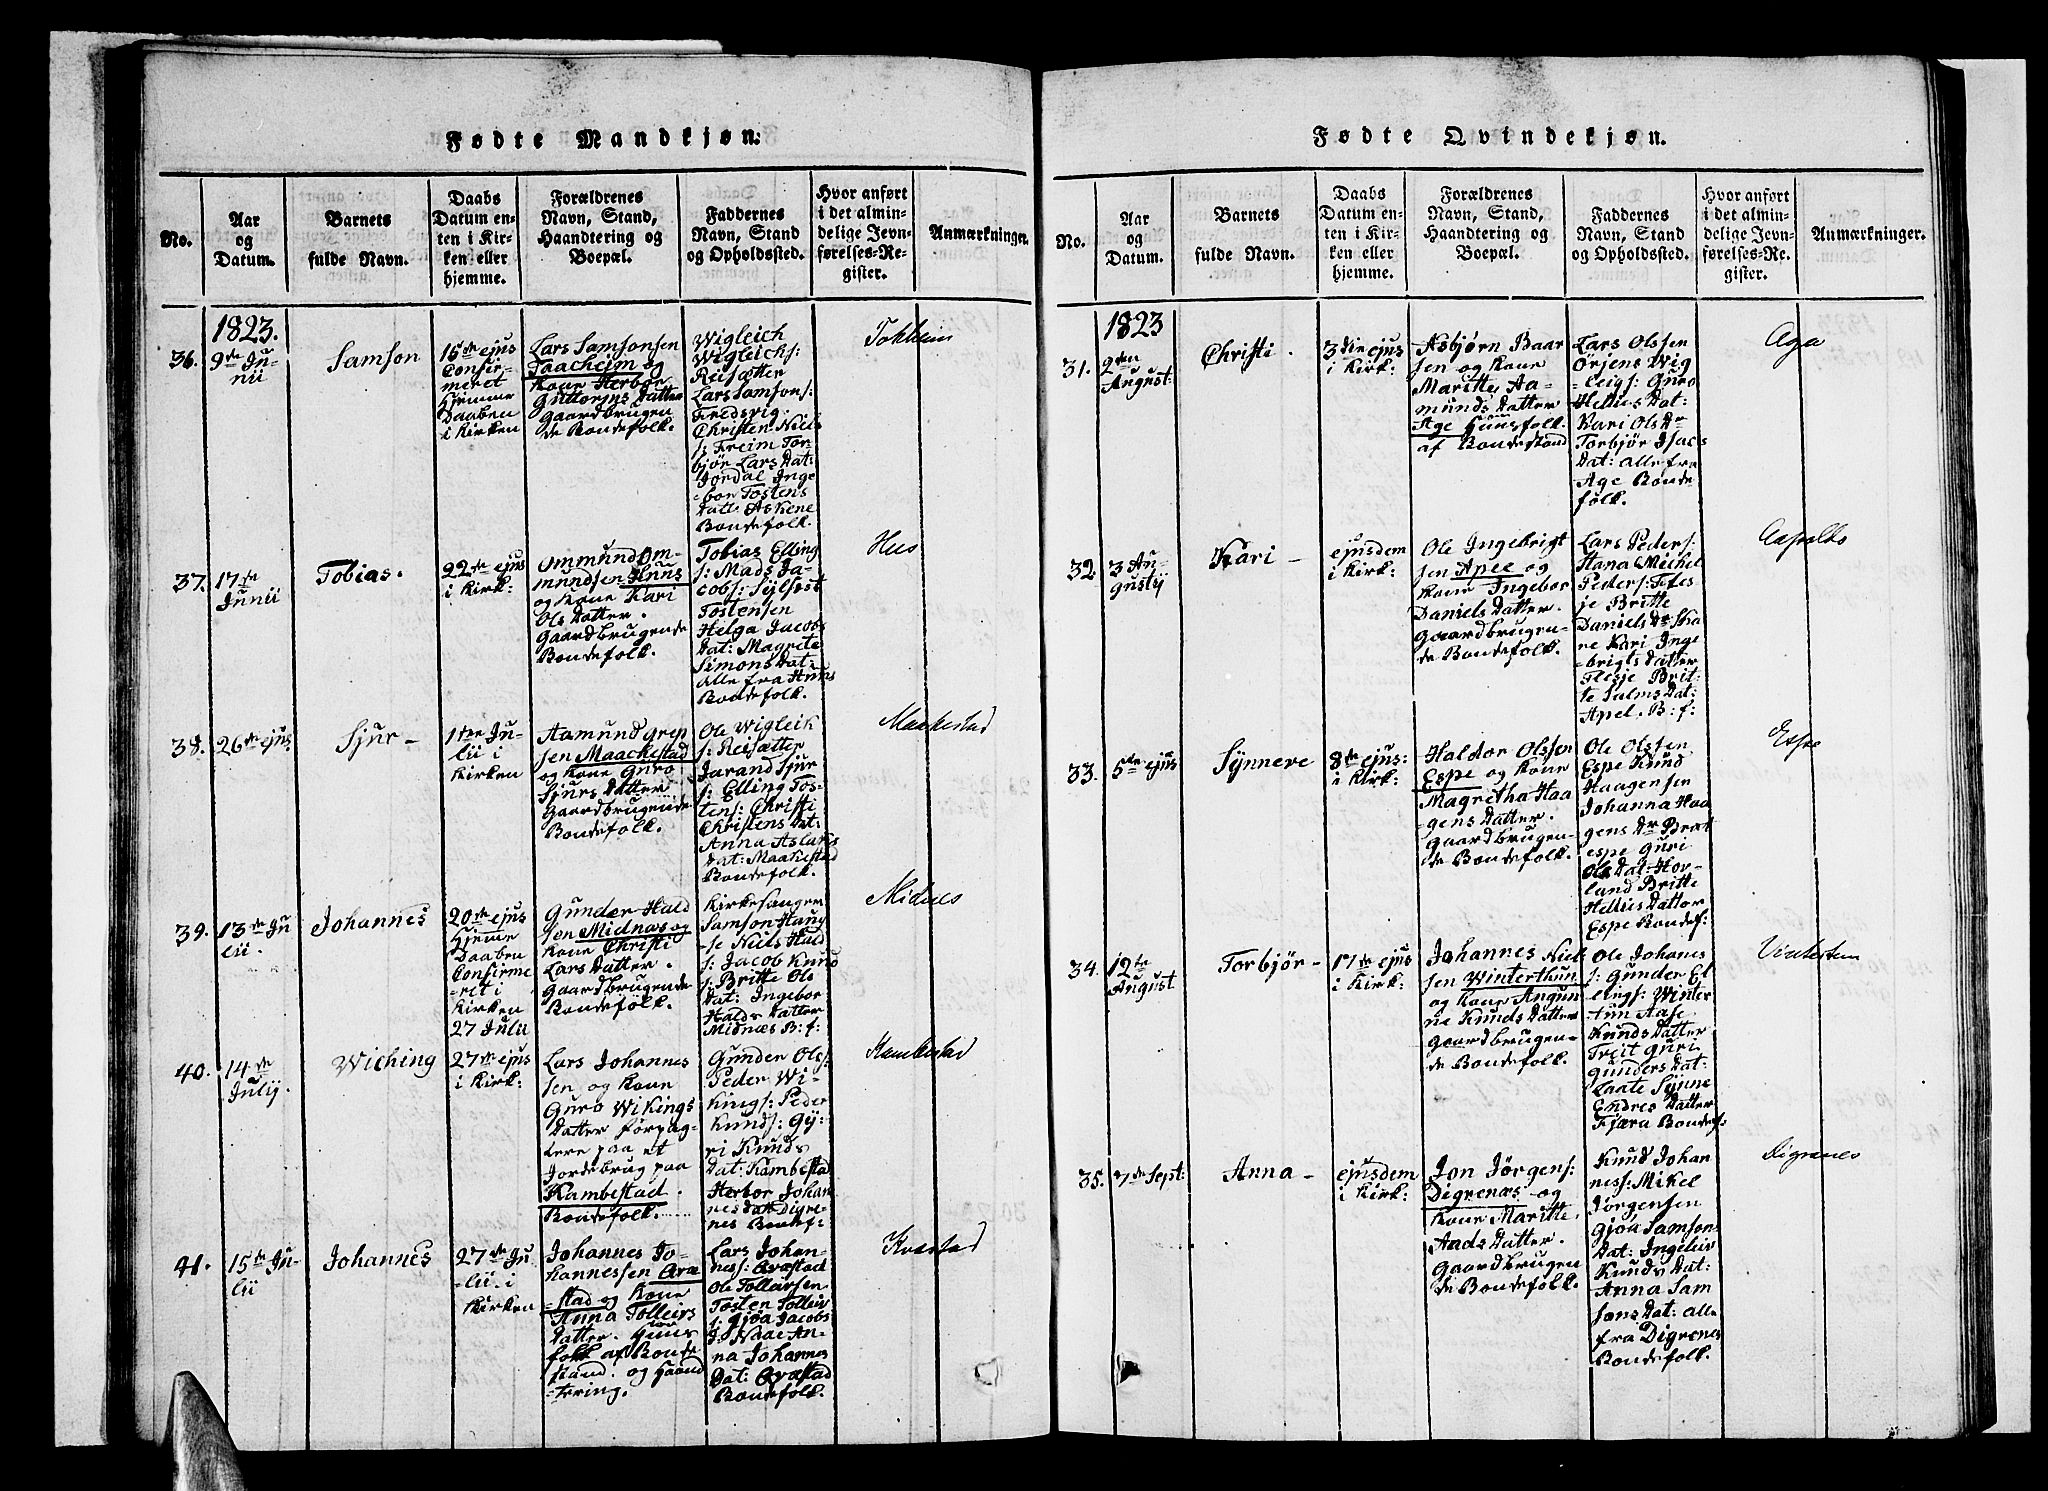 Fødte Mandkjøn:
No.
Aar
og
Datum.
Barnets
fulde Navn.
Daabs
Datum en-
ten i Kir-
ken eller
hjemme.
Forældrenes
Navn, Stand,
Haandtering og
Boepæl.
Faddernes
Navn, Stand
og Opholdssted.
Hvor anført
i det almin-
delige Jevn-
førelses-Re-
gister.
Anmærkninger.
1823.
36.
9de Ju-
nii
Samson
15de ejus
Confir-
meret
Hjemme
Daaben
i Kirken
Lars Samsonsen
Taacheim og
Kone Herbor
Guttorms Datter
Gaardbrugen
de Bondefolk.
Wigleich
Wigleichs:
Reisætter
Lars Samsons:
Fredsvig
Christen Niels
s: Freim Tor-
bjør Lars Dat:
Jordal Inge
-bor Tostens
Datt: Askene
Bondefolk.
Tokheim
37.
17de
Junii
Tobias.
22de ejus
i Kirk:
Ommund Om-
mundsen Huus
og Kone Kari
Ols Datter.
Gaardbrugende
Bondefolk.
Tobias Elling
s: Mads Ja-
cobs: Sylfest
Tostensen
Helga Jacobs
Dat: Magrete
Simons Dat:
alle fra Huus
Bondefolk.
Hus
38.
26de ejus
Sjur -
1ste Ju-
lii i
Kirken
Aamund Grep
sen Maachestad
og Kone Guro
Sjurs Datter
Gaardbrugende
Bondefolk.
Ole Wigleik
s: Reisætter
Jarand Sjur
s: Elling Tos-
tens: Christi
Christens Dat:
Anna Aslaks
Dat: Maakestad
Bondefolk.
Maakestad
39.
13de Ju-
lii.
Johannes
20de ejus
Hjeme
Daaben
Confirme
-ret i
Kirken
27 Julii
Gunder Hald
sen Midnæs og
Kone Christi
Lars Datter.
Gaardbrugende
Bondefolk.
Kirkesanger
Samson Haug
se Niels Hald
s: Jacob Knud
s: Britte Ols
Dat: Ingebor
Halds Datter
Midnæs B: f:
Midnes
40.
14de
July.
Wiching
27de ejus
i Kirk:
Lars Johannes
sen og Kone
Guro Wikings
Datter Forpag-
tere paa et
Jordebrug paa
Kambestad.
Bondefolk.
Gunder Ols:
Peder Wi-
kings: Peder
Knuds: Gy-
ri Knuds
Dat: Kambestad
Herbor Johan
nes Datt Digre-
nes Bondef:
Kambestad
41.
15de Ju-
lii
Johannes
27de Ju
-lii i
Kirken
Johannes Jo-
hannessen Qvæ
-stad og Kone
Anna Tolleivs
Datter. Huus
folk af Bonde
stand. og Haand
-tering.
Lars Johan-
nes: Qvæstad
Ole Tollevsen
Tosten Tolleiv
s: Gjøa Jacobs
D: Naae An-
na Johannes
Dat: Qvæstad
Bondefolk.
Kvæstad
Fødte Qvindekjøn.
No.
Aar
og
Datum.
Barnets
fulde Navn.
Daabs
Datum en-
ten i Kir-
ken eller
hjemme.
Forældrenes
Navn, Stand,
Haandtering og
Boepæl.
Faddernes
Navn, Stand
og Opholdssted.
Hvor anført
i det almin-
delige Jevn-
førelses-Re-
gister.
Anmærkninger.
1823
31.
2den
August:
Christi.
3die ejus
i Kirk:
Asbjørn Baar
sen og Kone
Maritte Aa-
munds Datter
Age Huusfolk.
af Bondestand
Lars Olssen
Ørjens Wig
-leigs: Guro
Helius Dat:
Kari Ols Dr
Torbjør Isacs
Dat: alle fra
Age Bonde
folk.
Aga
32
3 Au-
gusty
Kari -
ejusdem
i Kirk:
Ole Ingebrigt
sen Apee og
Kone Ingebor
Daniels Datter.
Gaardbrugen-
de Bondefolk.
Lars Peders:
Hana Michel
Peders: Fles
je Britte
Daniels Dr Ska
re Kari Inge
-brigts Datter
Flesje Brit-
te Salms Dat:
Apel. B: f:
33.
5te ejus
Synneve
8de ejus:
i Kirk:
Haldor Olssen
Espe og Kone
Magretha Haa
-gens Datter.
Gaardbrugen-
de Bondefolk.
Ole Olssen
Espe Knud
Haagensen
Johanna Haa
gens Dr Brat
espe Guri
Ols Dat: Hov-
land Britte
Helius Dattor
Espe Bondef:
Espe
34.
12te
August
Torbjør -
17de ejus
i Kirk:
Johannes Niel
sen Winterthun
og Kone Angun
ne Knuds Datter
Gaardbrugen-
de Bondefolk.
Ole Johanes
s: Gunder El
lings: Winter
tun Aase
Knuds Datter
Treit Guri
Gunders Dat:
Laate Synne
Endres Datter
Fjæra Bondef:
Vintertun
35.
7de Sept:
Anna -
ejusdem
i Kirk:
Jon Jörgens:
Digrenæs og
Kone Maritte
Aads Datter.
Gaardbrugen
de Bondefolk.
Knud Johan
nes: Mikel
Jørgensen
Gjøa Samson-
Dat: Ingeleiv
Knuds Dat:
Anna Sam
sons Dat: alle
fra Digrenes
Bondefolk.
Digranes